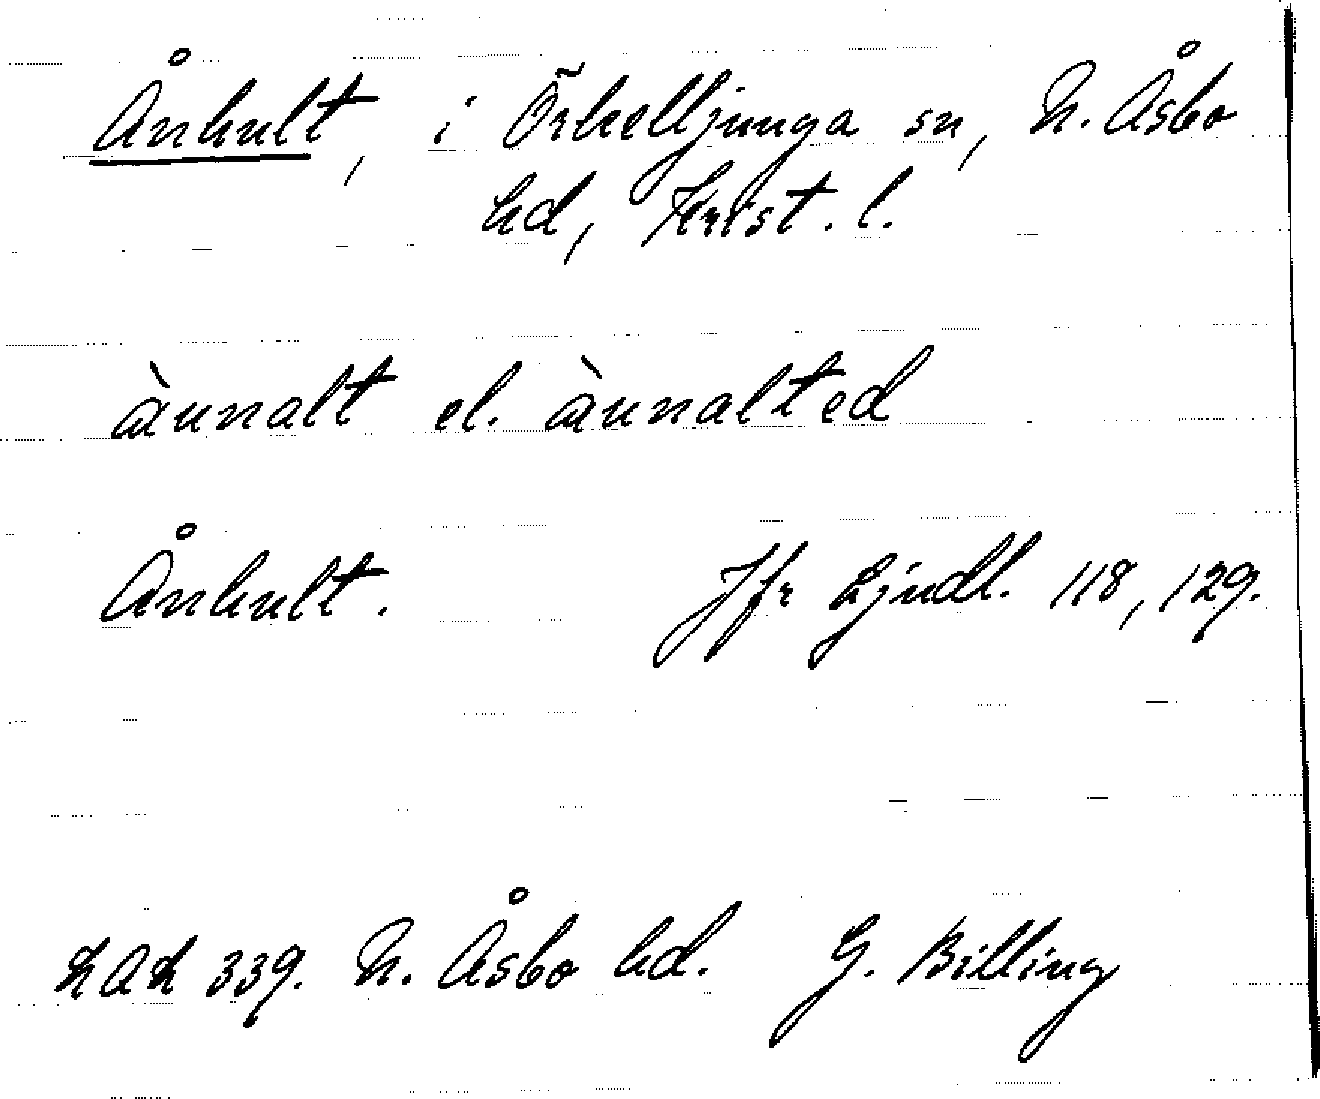 Ånhult, i Örkelljunga sn, N. Åsbo
hd, Krist. l.
ànnalt el. ànnalted
Ånhult. Jfr Ljudl. 118, 129.
LAL 339. N. Åsbo hd. G. Billing